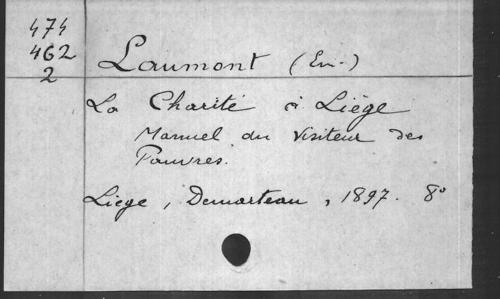 474
462
2
Laumont (Em.)
La Charité à Liège
Manuel du Visiteur des
Pauvres.
Liege, Demarteau, 1897. 8°